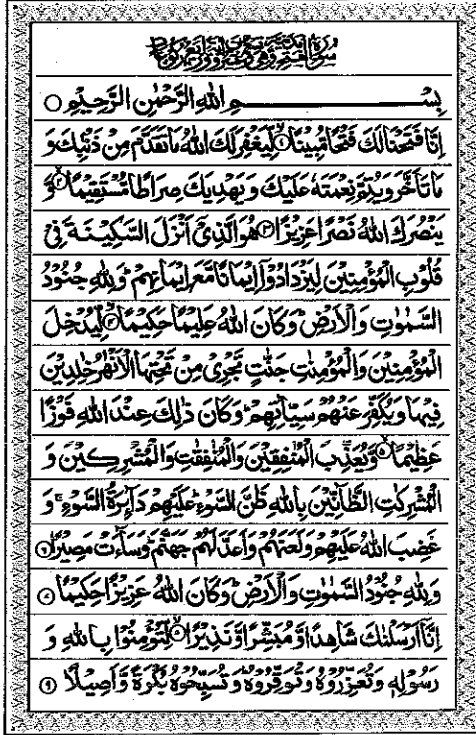 بِسْمِ اللهِ الرَّحْمٰنِ الرَّحِيْمِ ○
اِنَّا فَتَحْنَا لَكَ فَتْحًا مُّبِيْنًا ۙ﴿۱﴾ لِّيَغْفِرَ لَكَ اللهُ مَا تَقَدَّمَ مِنْ ذَنْۢبِكَ وَ
مَا تَاَخَّرَ وَيُتِمَّ نِعْمَتَهٗ عَلَيْكَ وَيَهْدِيَكَ صِرَاطًا مُّسْتَقِيْمًا ۙ﴿۲﴾ وَّ
يَنْصُرَكَ اللهُ نَصْرًا عَزِيْزًا ﴿۳﴾ هُوَ الَّذِيْٓ اَنْزَلَ السَّكِيْنَةَ فِيْ
قُلُوْبِ الْمُؤْمِنِيْنَ لِيَزْدَادُوْٓا اِيْمَانًا مَّعَ اِيْمَانِهِمْ ؕ وَلِلّٰهِ جُنُوْدُ
السَّمٰوٰتِ وَالْاَرْضِ ؕ وَكَانَ اللهُ عَلِيْمًا حَكِيْمًا ۙ﴿۴﴾ لِّيُدْخِلَ
الْمُؤْمِنِيْنَ وَالْمُؤْمِنٰتِ جَنّٰتٍ تَجْرِيْ مِنْ تَحْتِهَا الْاَنْهٰرُ خٰلِدِيْنَ
فِيْهَا وَيُكَفِّرَ عَنْهُمْ سَيِّاٰتِهِمْ ؕ وَكَانَ ذٰلِكَ عِنْدَ اللهِ فَوْزًا
عَظِيْمًا ۙ﴿۵﴾ وَّيُعَذِّبَ الْمُنٰفِقِيْنَ وَالْمُنٰفِقٰتِ وَالْمُشْرِكِيْنَ وَ
الْمُشْرِكٰتِ الظَّآنِّيْنَ بِاللهِ ظَنَّ السَّوْءِ ؕ عَلَيْهِمْ دَآئِرَةُ السَّوْءِ ۚ وَ
غَضِبَ اللهُ عَلَيْهِمْ وَلَعَنَهُمْ وَاَعَدَّ لَهُمْ جَهَنَّمَ ؕ وَسَآءَتْ مَصِيْرًا ﴿۶﴾
وَلِلّٰهِ جُنُوْدُ السَّمٰوٰتِ وَالْاَرْضِ ؕ وَكَانَ اللهُ عَزِيْزًا حَكِيْمًا ﴿۷﴾
اِنَّآ اَرْسَلْنٰكَ شَاهِدًا وَّمُبَشِّرًا وَّنَذِيْرًا ۙ﴿۸﴾ لِّتُؤْمِنُوْا بِاللهِ وَ
رَسُوْلِهٖ وَتُعَزِّرُوْهُ وَتُوَقِّرُوْهُ ؕ وَتُسَبِّحُوْهُ بُكْرَةً وَّاَصِيْلًا ﴿۹﴾